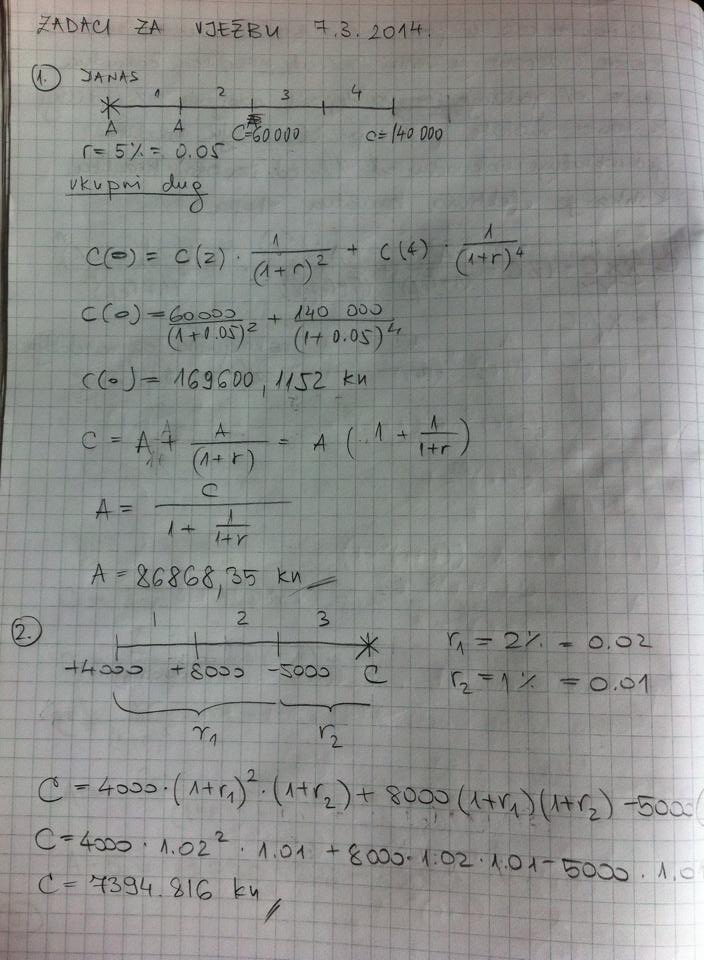 ZADACI ZA VJEŽBU 7.3.2014.
1. DANAS
1 2 3 4
A A C=60000 C=140 000
r = 5% = 0.05
ukupni dug
C(0) = C(2) · 1/(1+r)^2 + C(4) · 1/(1+r)^4
C(0) = 60000/(1+0.05)^2 + 140 000/(1+0.05)^4
C(0) = 169600,1152 kn
C = A + A/(1+r) = A (1 + 1/(1+r))
A = C/(1 + 1/(1+r))
A = 86868,35 kn
2. 1 2 3
r1 = 2% = 0.02
+4000 +8000 -5000 C
r2 = 1% = 0.01
r1 r2
C = 4000·(1+r1)^2·(1+r2) + 8000(1+r1)(1+r2) -5000(
C = 4000 · 1.02^2 · 1.01 + 8000·1.02·1.01 - 5000 · 1.0
C = 7394.816 kn